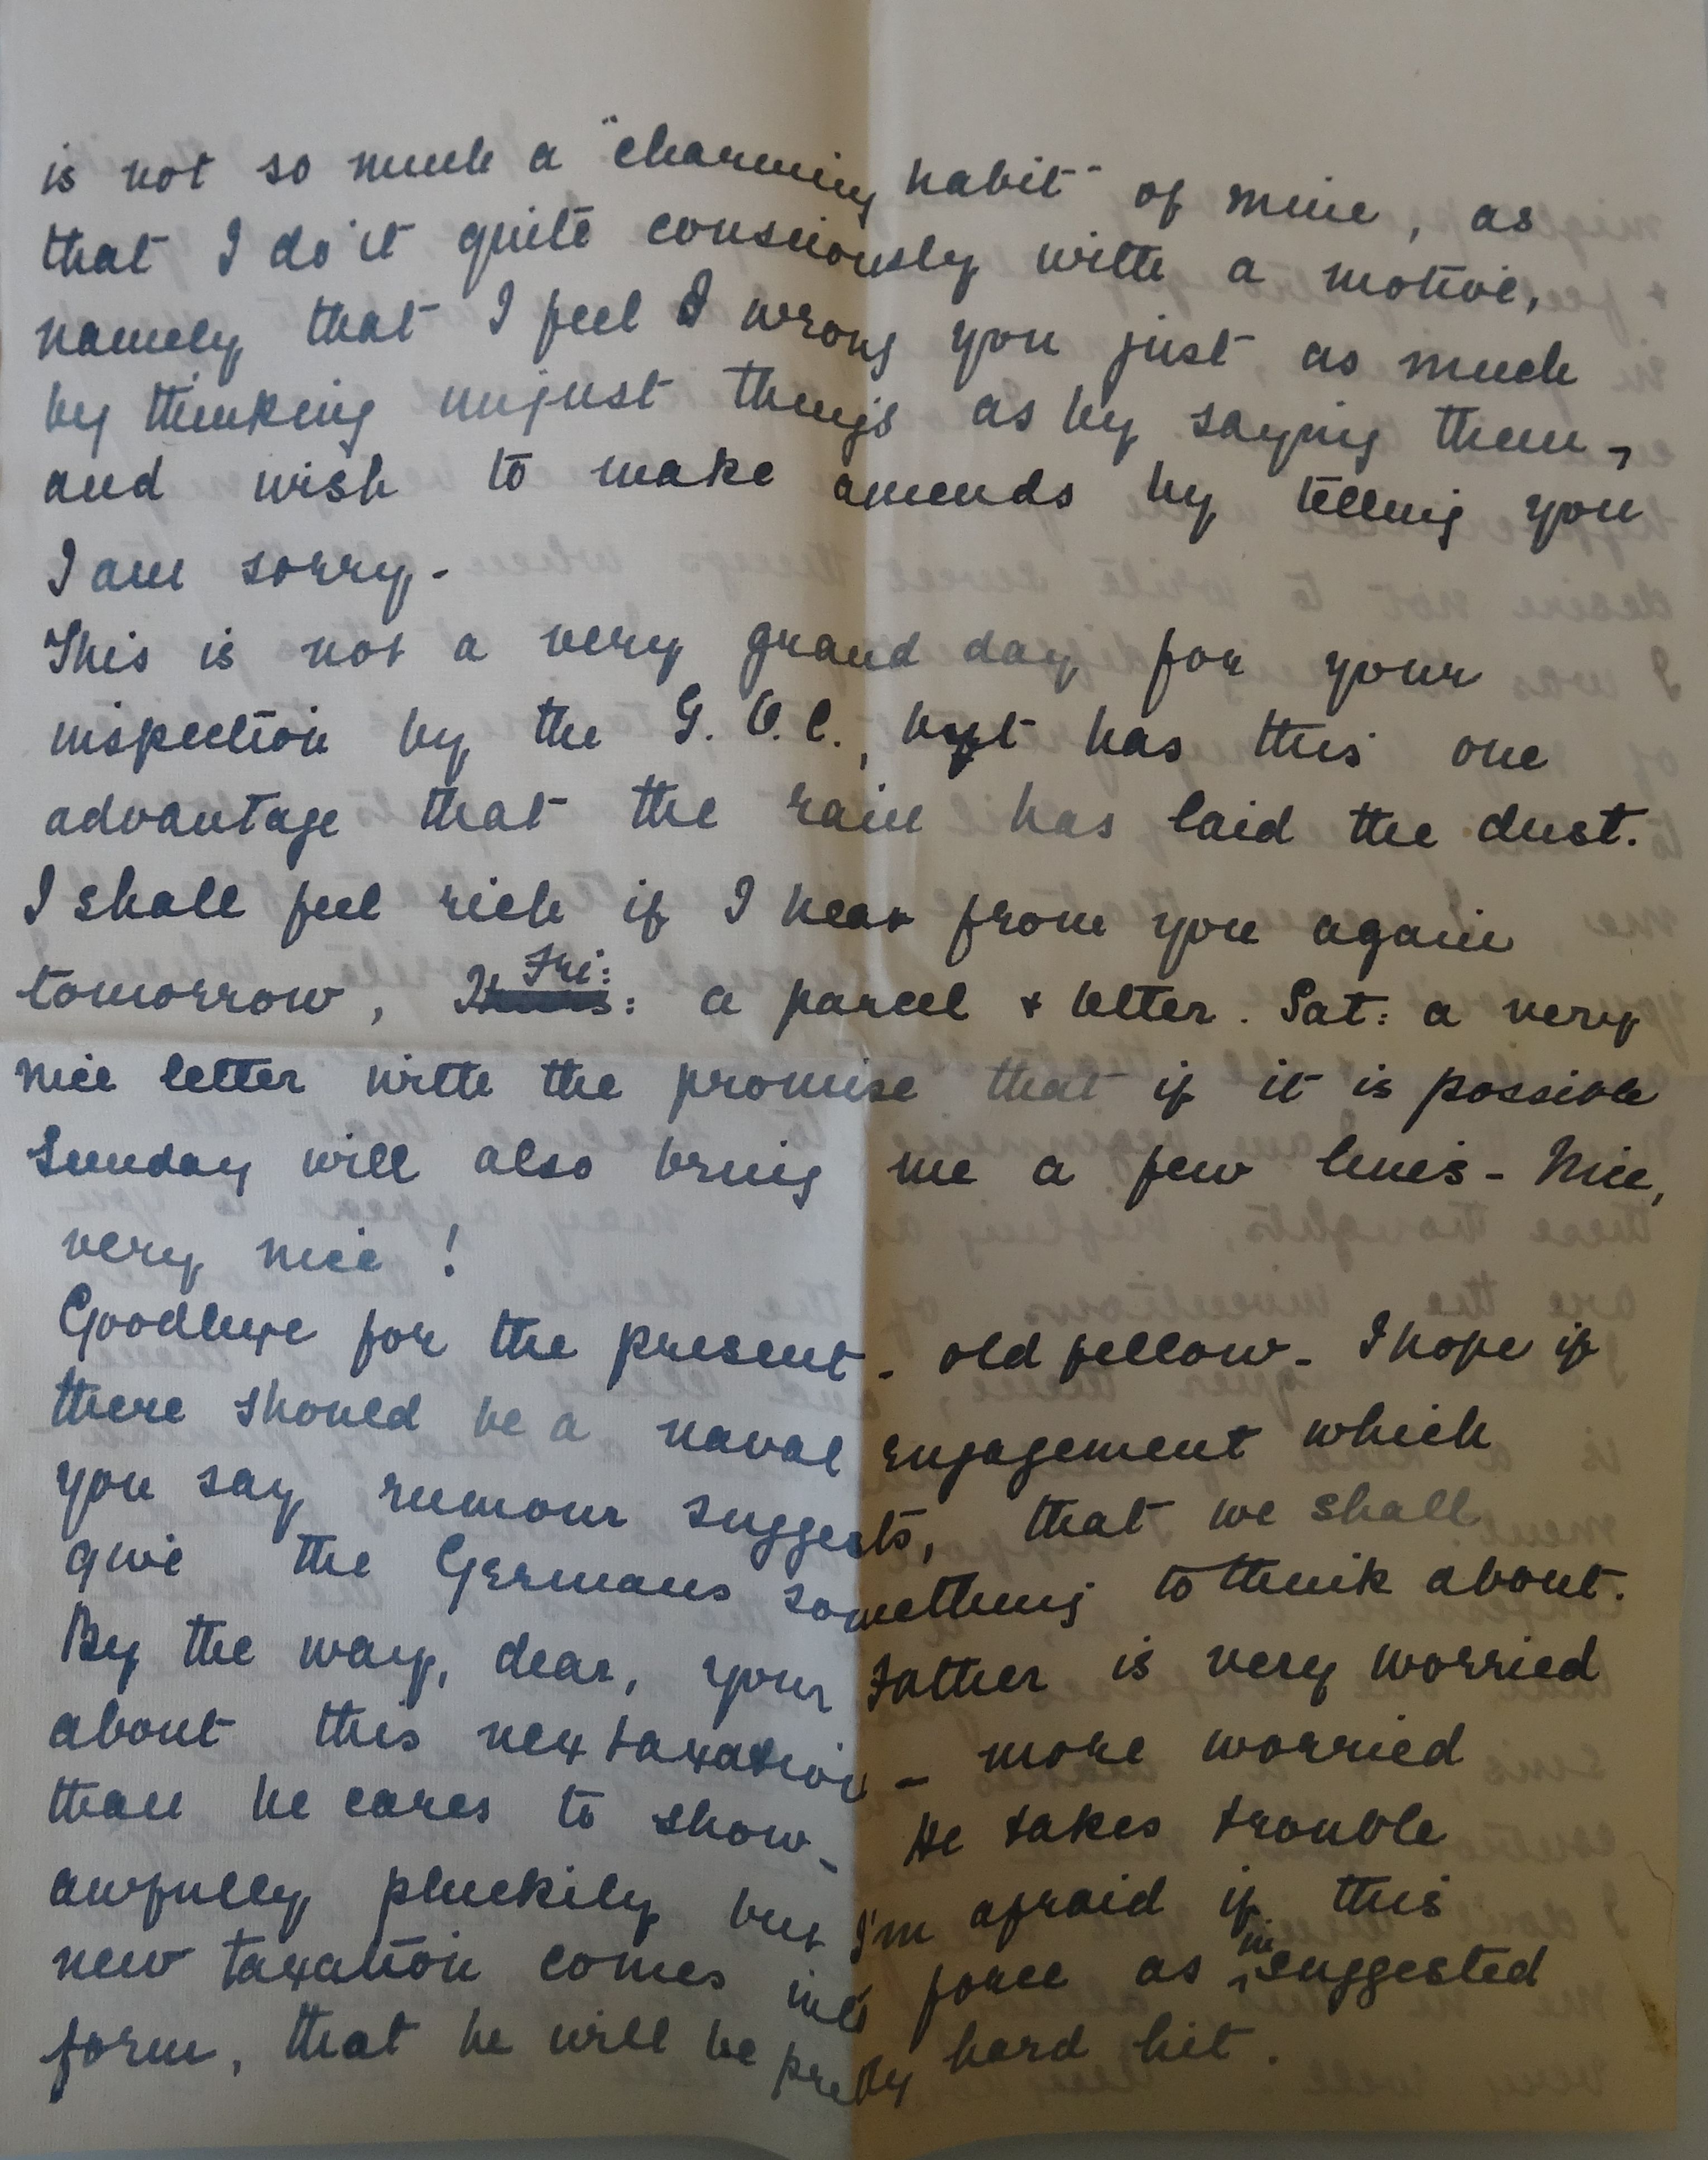 is not so much a "charming habit" of mine, as
that I do it quite consciously with a motive,
namely that I feel I wrong you just as much
by thinking unjust things as by saying them,
and wish to make amends by telling you
I am sorry.-
This is not a very grand day for your
inspection by the G.O.C., but has this one
advantage that the rain has laid the dust.
I shall feel rich if I hear from you again
tomorrow, Thurs: Fri: a parcel + letter. Sat: a very
nice letter with the promise that if it is possible
Sunday will also bring me a few lines - Nice,
very nice!
Goodbye for the present - old fellow - I hope if
there should be a naval engagement which
you say rumour suggests, that we shall
give the Germans something to think about.
By the way, dear, your Father is very worried
about this new taxation - more worried
than he cares to show - He takes trouble
awfully pluckily but I'm afraid if this
new taxation comes into force as in suggested
form, that he will be pretty hard hit.